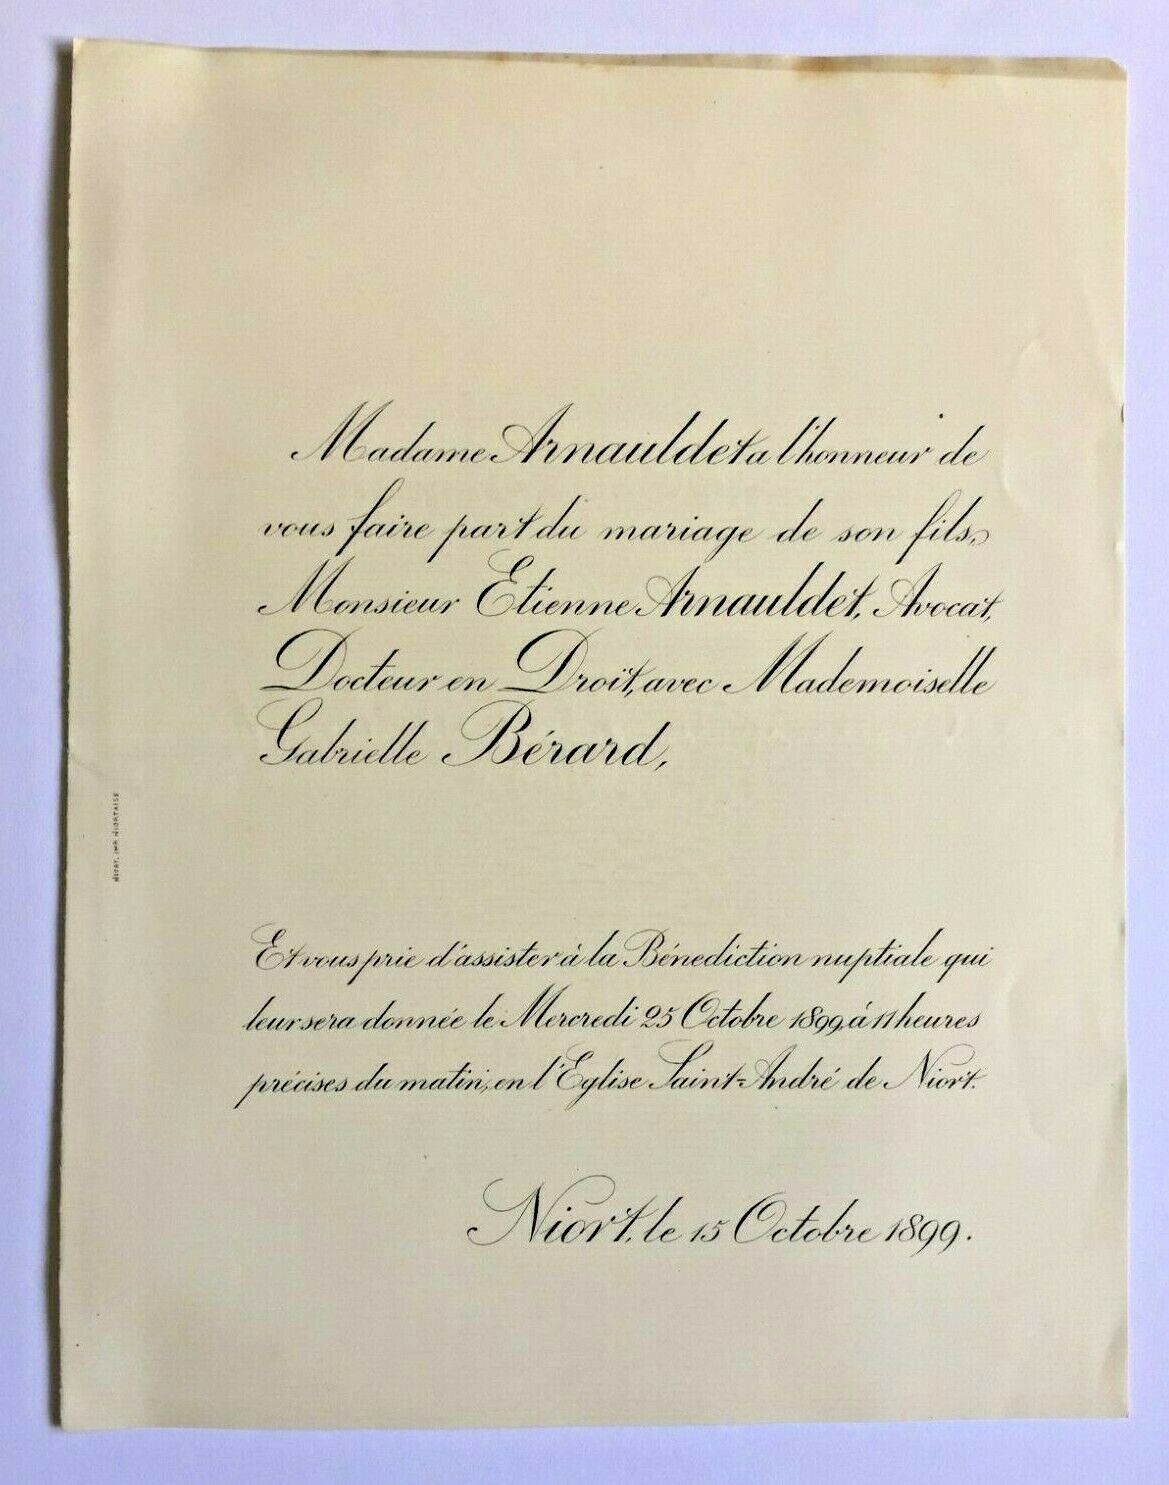 Madame Arnauldet a l'honneur de
vous faire part du mariage de son fils,
Monsieur Etienne Arnauldet, Avocat,
Docteur en Droit, avec Mademoiselle
Gabrielle Bérard,
NIORT, IMP. NIORTAISE
Et vous prie d'assister à la Bénédiction nuptiale qui
leur sera donnée le Mercredi 25 Octobre 1899, à 11 heures
précises du matin, en l'Eglise Saint-André de Niort.
Niort, le 15 Octobre 1899.